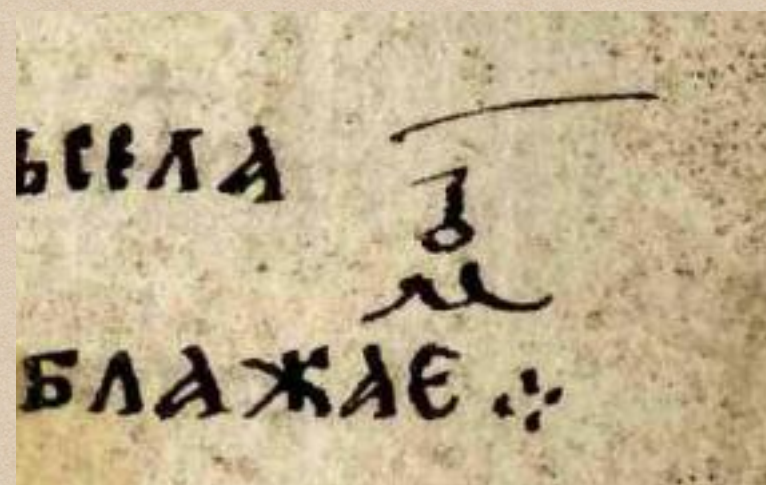 ЬСЕЛА
БЛАЖАЄ ⁘